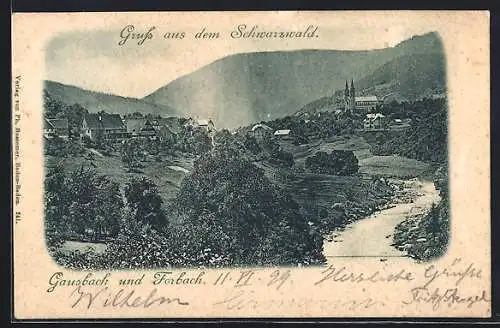 Gruß aus dem Schwarzwald.
Verlag von Ph. Bussemer, Baden-Baden. 241.
Gausbach und Forbach. 11. VI. 99. Herzliche Grüsse
Wilhelm Hermann Fritz